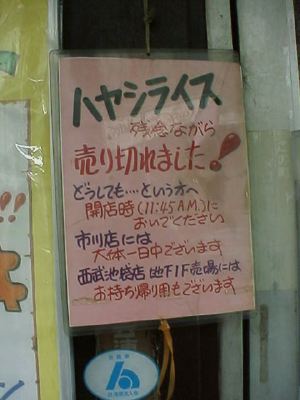 ハヤシライス
残念ながら
売り切れました!
どうしても…という方へ
開店時(11:45A.M.)に
おいでください
市川店には
大体一日中でございます
西武池袋店地下1F売場には
お持ち帰り用もございます
!!